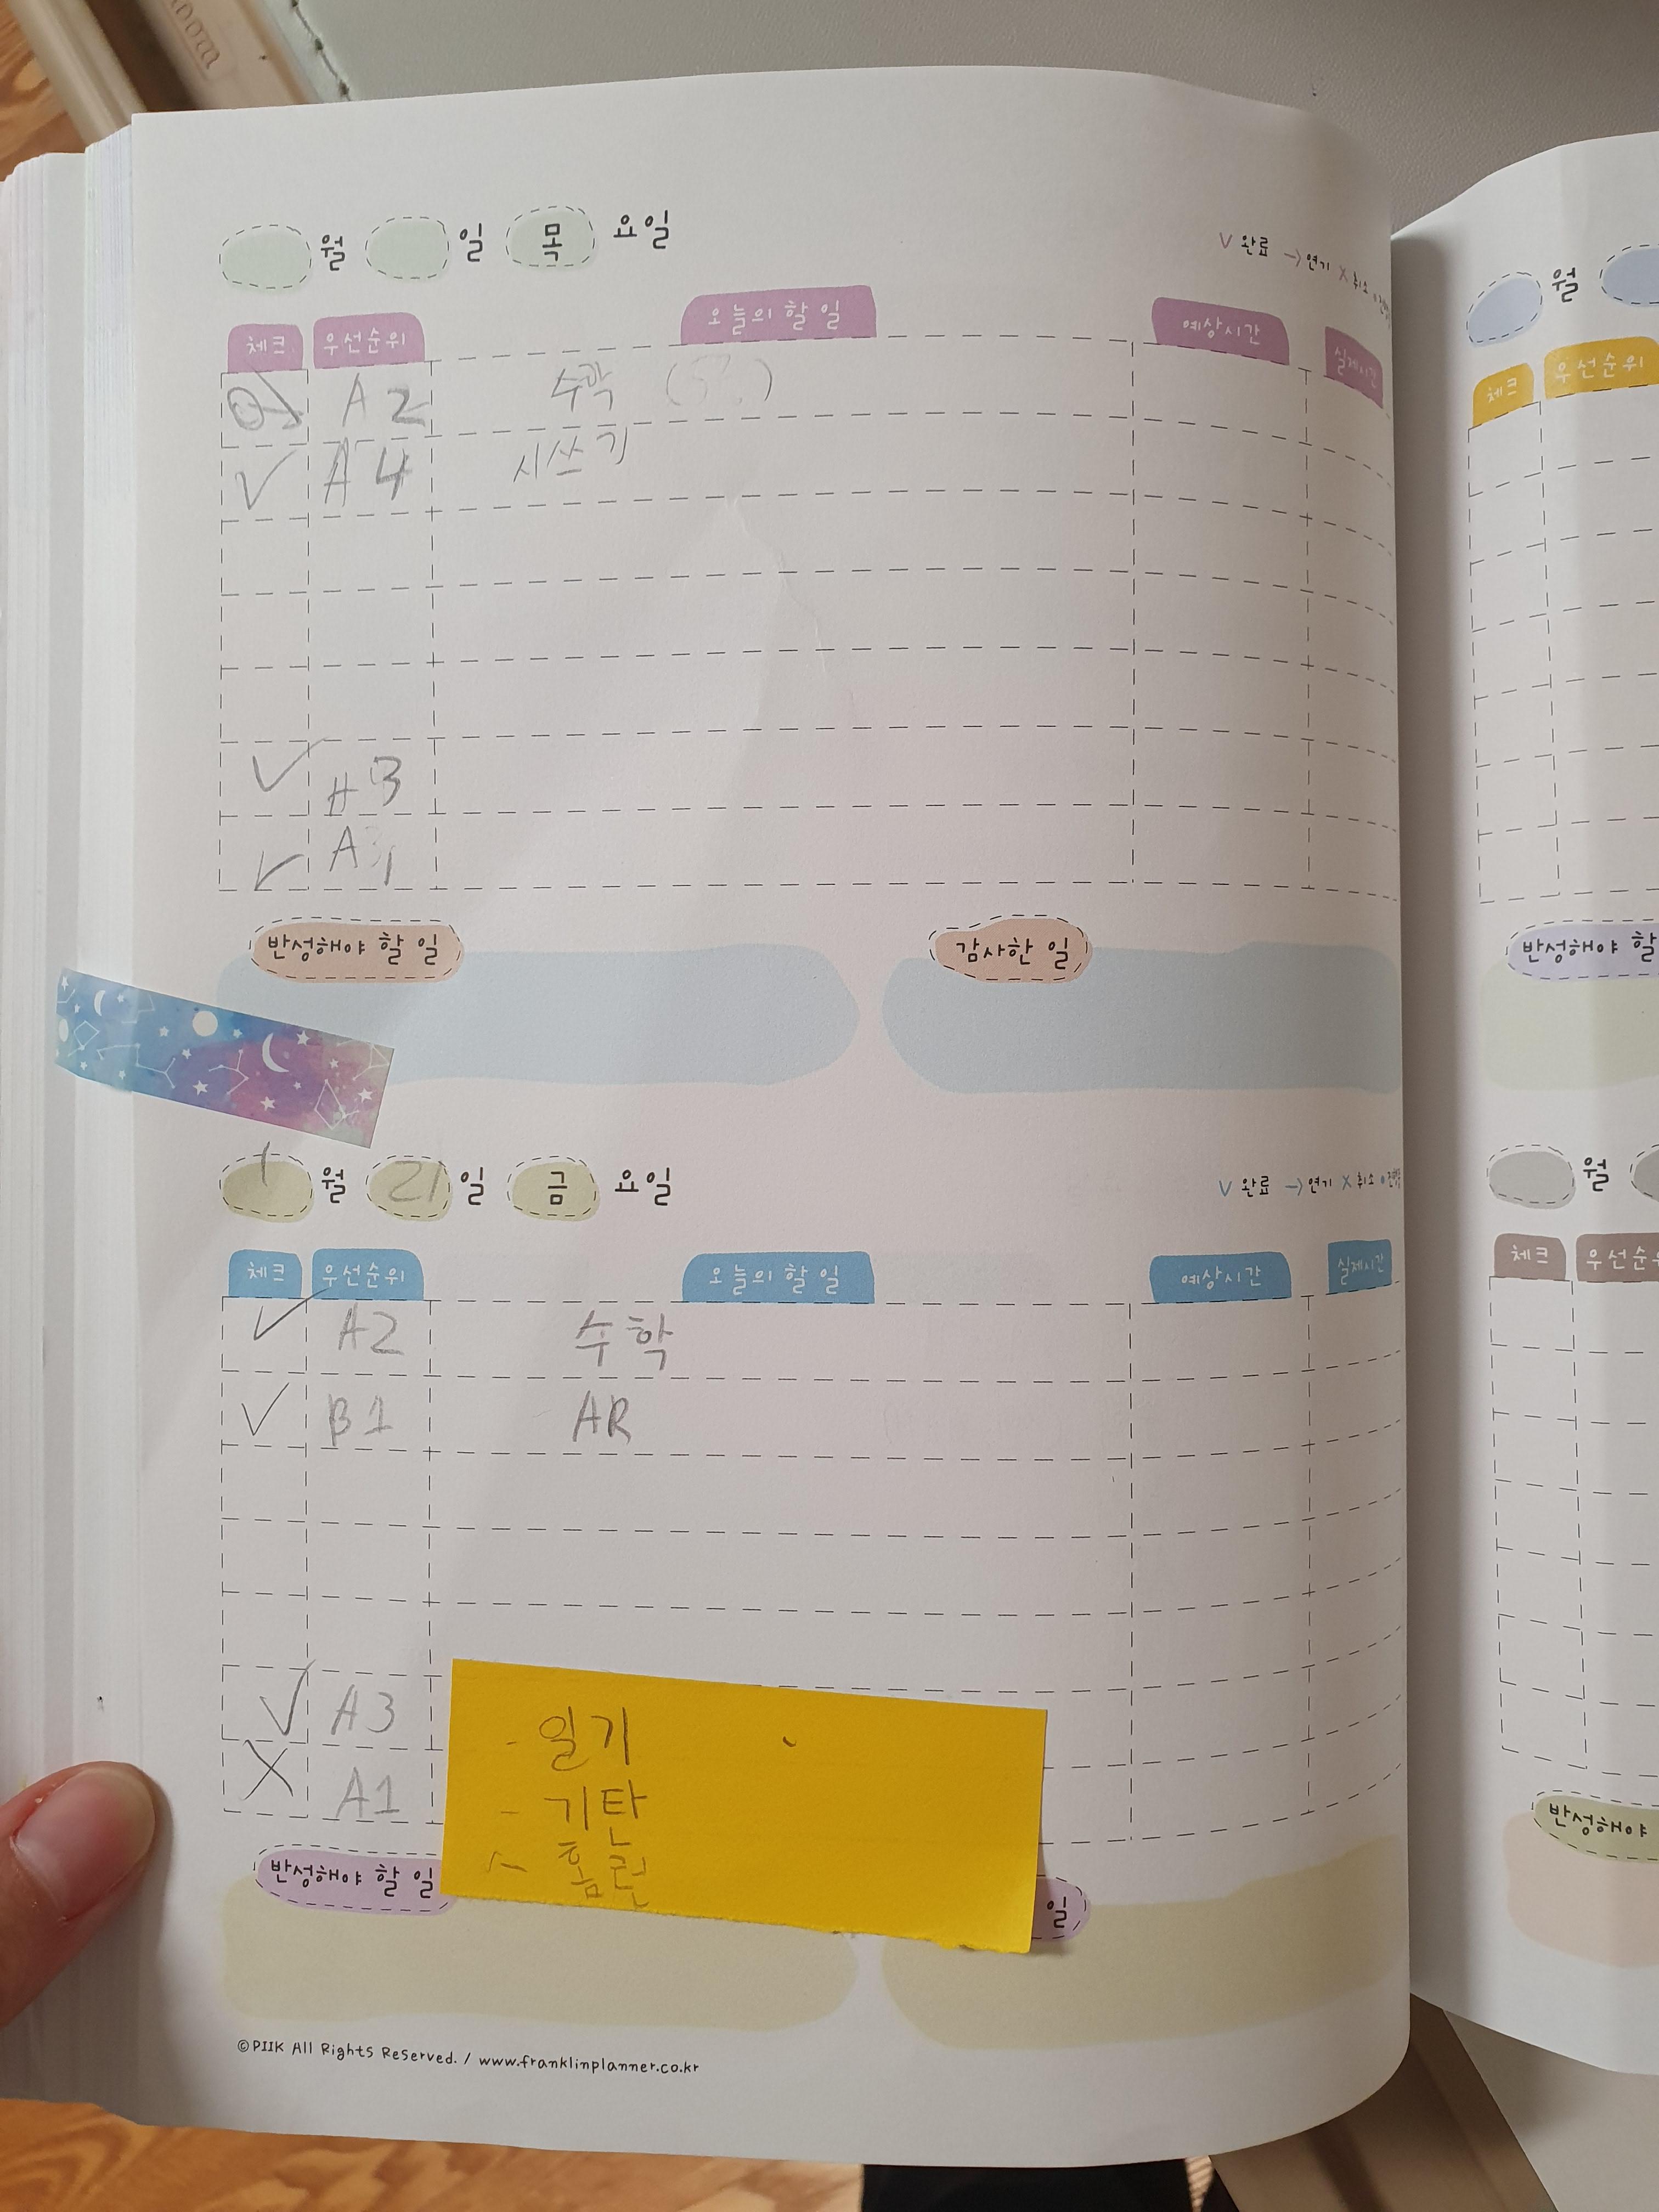 월 일 목 요일
V 완료 →연기 X 취소
체크 우선순위 오늘의 할 일 예상시간 실제시간
A2
✓ A4 시쓰기
✓ A3
✓ A1
반성해야 할 일 감사한 일
1월 21일 금 요일
V 완료 →연기 X 취소
체크 우선순위 오늘의 할 일 예상시간 실제시간
✓ A2 수학
✓ B1 AR
✓ A3
X A1
- 일기
- 기탄
홈런
반성해야 할 일 일
©PIIK All Rights Reserved. / www.franklinplanner.co.kr
월
체크 우선순위
반성해야 할
월
체크 우선순
반성해야